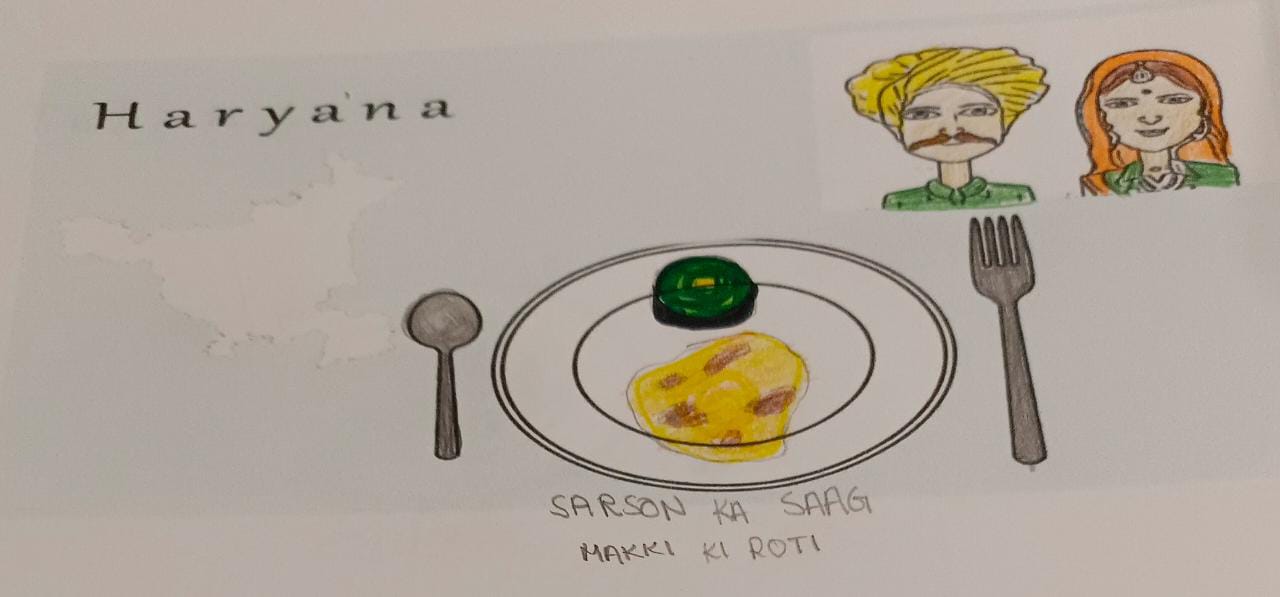 Haryana
SARSON KA SAAG
MAKKI KI ROTI